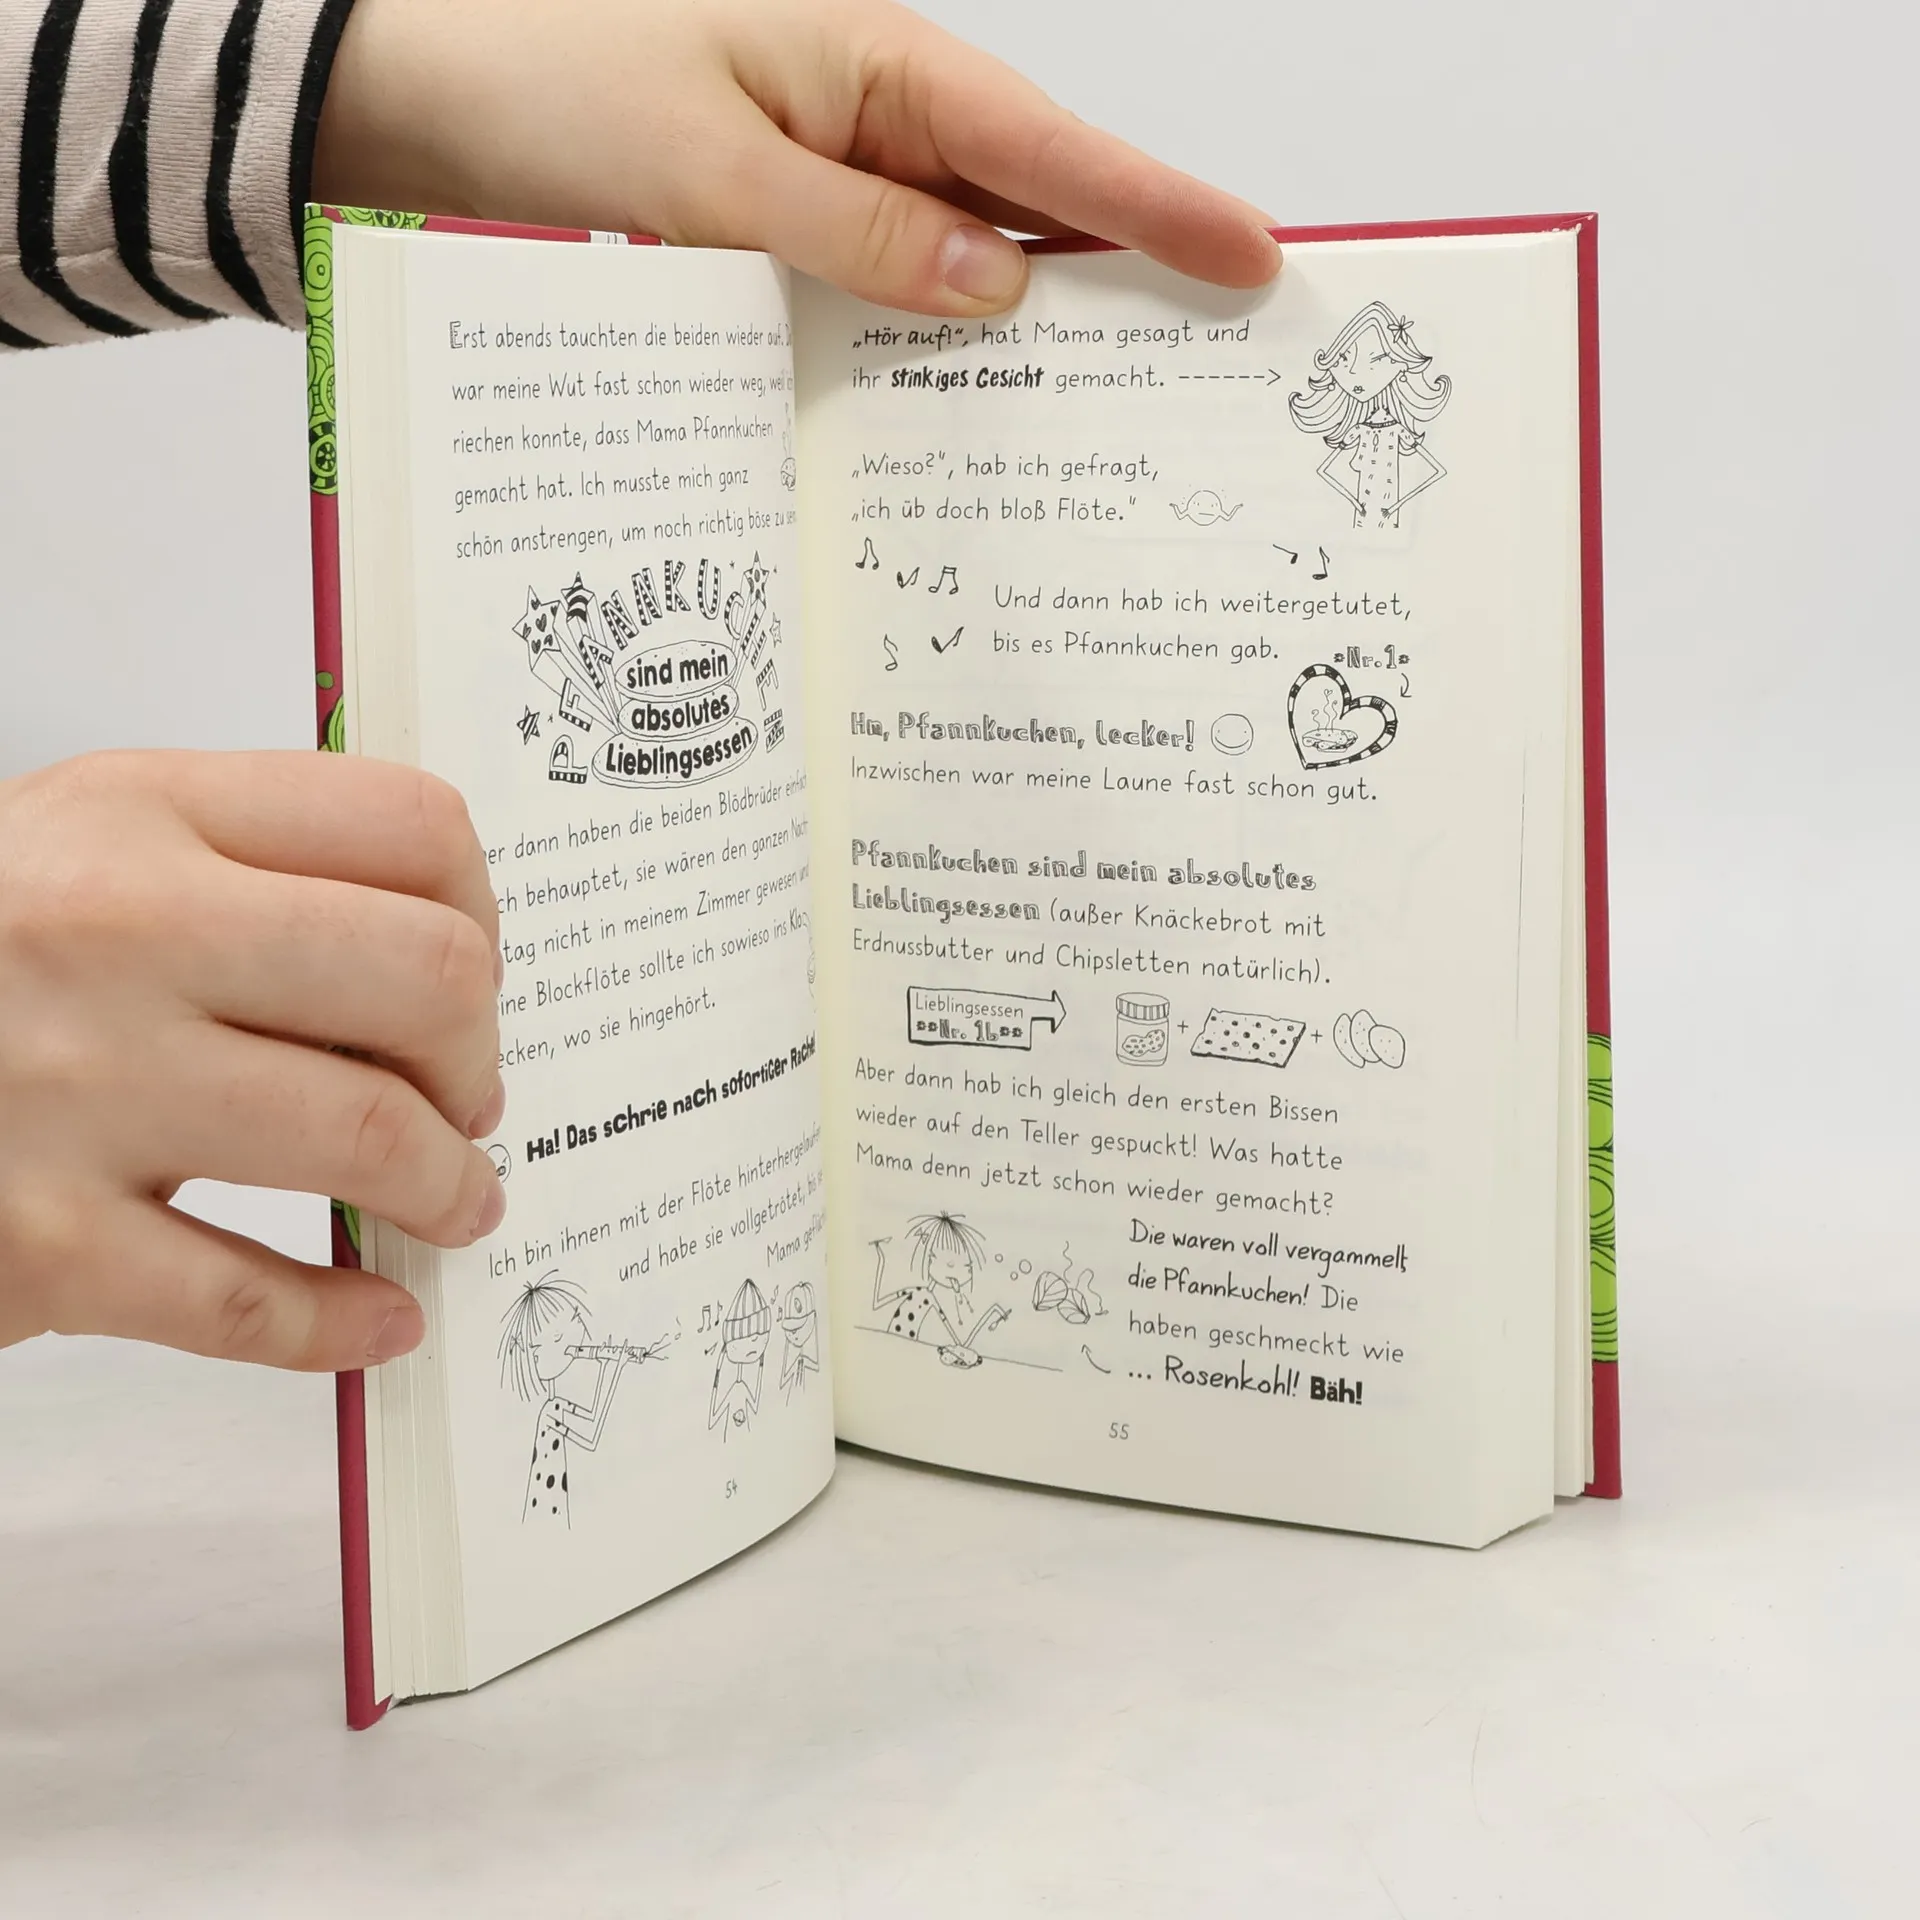 Erst abends tauchten die beiden wieder auf.
war meine Wut fast schon wieder weg, weil
riechen konnte, dass Mama Pfannkuchen
gemacht hat. Ich musste mich ganz
schön anstrengen, um noch richtig böse zu
PFANNKUCHEN
sind mein
absolutes
Lieblingsessen
dann haben die beiden Blödbrüder einfach
behauptet, sie wären den ganzen Nach-
tag nicht in meinem Zimmer gewesen und
ine Blockflöte sollte ich sowieso ins Klo
ecken, wo sie hingehört.
Ha! Das schrie nach sofortiger Rache!
Ich bin ihnen mit der Flöte hinterhergelaufen
und habe sie vollgetrötet, bis
Mama
54
„Hör auf!“, hat Mama gesagt und
ihr stinkiges Gesicht gemacht. ------>
„Wieso?“, hab ich gefragt,
„ich üb doch bloß Flöte.“
Und dann hab ich weitergetutet,
bis es Pfannkuchen gab.
*Nr.1*
Hm, Pfannkuchen, lecker!
Inzwischen war meine Laune fast schon gut.
Pfannkuchen sind mein absolutes
Lieblingsessen (außer Knäckebrot mit
Erdnussbutter und Chipsletten natürlich).
Lieblingsessen
**Nr. 1b**
+ +
Aber dann hab ich gleich den ersten Bissen
wieder auf den Teller gespuckt! Was hatte
Mama denn jetzt schon wieder gemacht?
Die waren voll vergammelt,
die Pfannkuchen! Die
haben geschmeckt wie
... Rosenkohl! Bäh!
55